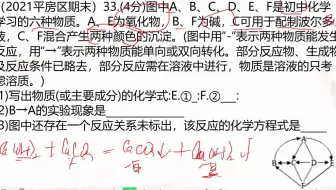 (2021平房区期末) 33.(4分)图中A、B、C、D、E、F是初中化学
学习的六种物质。A、E为氧化物，B、F为碱，C可用于配制波尔多
液，C、F混合产生两种颜色的沉淀。(图中用"-"表示两种物质能发生
反应，用"→"表示两种物质能单向或双向转化。部分反应物、生成物
及反应条件已略去，部分反应需在溶液中进行，物质是溶液的只考
虑溶质。)
1)写出物质(或主要成分)的化学式:E.①_:F.②___;
2)B→A的实验现象是
3)图中还存在一个反应关系未标出，该反应的化学方程式是
A
B
C
D
E
F